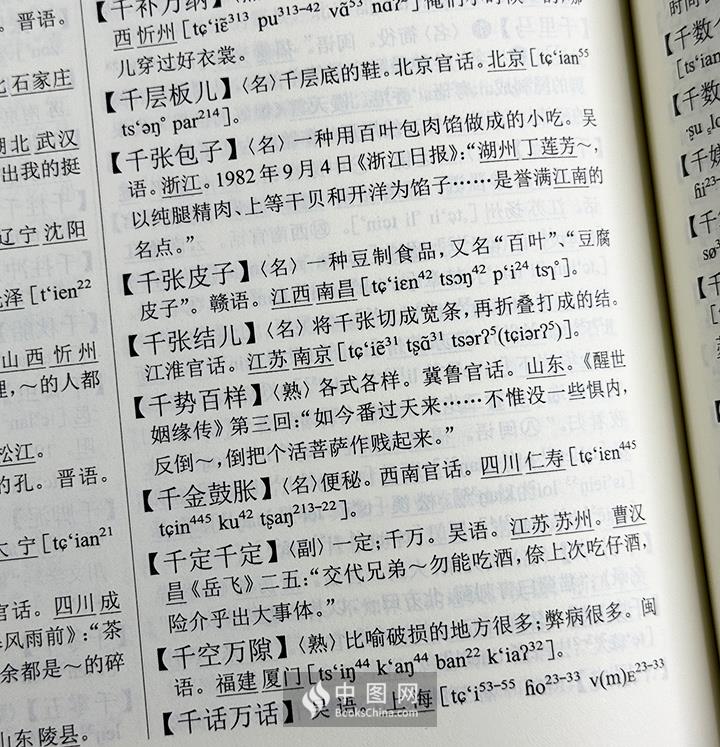 晋语。
石家庄
湖北 武汉
出我的挺
辽宁 沈阳
泽［tʻien²²
山 西 忻 州
，～的人都
松江。
的孔。晋语。
宁［tɕʻian²¹
官话。四川 成
风雨前》：“茶
余都是～的碎
山东 陵县。
西 忻州［tɕʻiɛ̃³¹³ pu³¹³⁻⁴² vã⁵³
儿穿过好衣裳。
【千层板儿】〈名〉千层底的鞋。北京官话。北京［tɕʻian⁵⁵
tsʻəŋ° par²¹⁴］。
【千张包子】〈名〉一种用百叶包肉馅做成的小吃。吴
语。浙江。1982年9月4日《浙江日报》：“湖州 丁莲芳～，
以纯腿精肉、上等干贝和开洋为馅子……是誉满江南的
名点。”
【千张皮子】〈名〉一种豆制食品，又名“百叶”“豆腐
皮子”。赣语。江西 南昌［tɕʻiɛn⁴² tsɔŋ⁴² pʻi²⁴ tsɿ°］。
【千张结儿】〈名〉将千张切成宽条，再折叠打成的结。
江淮官话。江苏 南京［tɕʻiẽ³¹ tʂã³¹ tsərʔ⁵(tɕiərʔ⁵)］。
【千势百样】〈熟〉各式各样。冀鲁官话。山东。《醒世
姻缘传》第三回：“如今番过天来……不惟没一些惧内，
反倒～，倒把个活菩萨作贱起来。”
【千金鼓胀】〈名〉便秘。西南官话。四川 仁寿［tɕʻiɛn⁴⁴⁵
tɕin⁴⁴⁵ ku⁴² tʂaŋ²¹³⁻²²］。
【千定千定】〈副〉一定；千万。吴语。江苏 苏州。曹汉
昌《岳飞》二五：“交代兄弟～勿能吃酒，倷上次吃仔酒，
险介乎出大事体。”
【千空万隙】〈熟〉比喻破损的地方很多；弊病很多。闽
语。福建 厦门［tsʻiŋ⁴⁴ kʻaŋ⁴⁴ ban²² kʻiaʔ³²］。
【千话万话】 吴语。上海［tɕʻi⁵³⁻⁵⁵ ɦo²³⁻³³ v(m)ᴇ²³⁻³³
中图网
BooksChina.com
时间
【千数
［tsʻian
【千数
【千
【千
【千